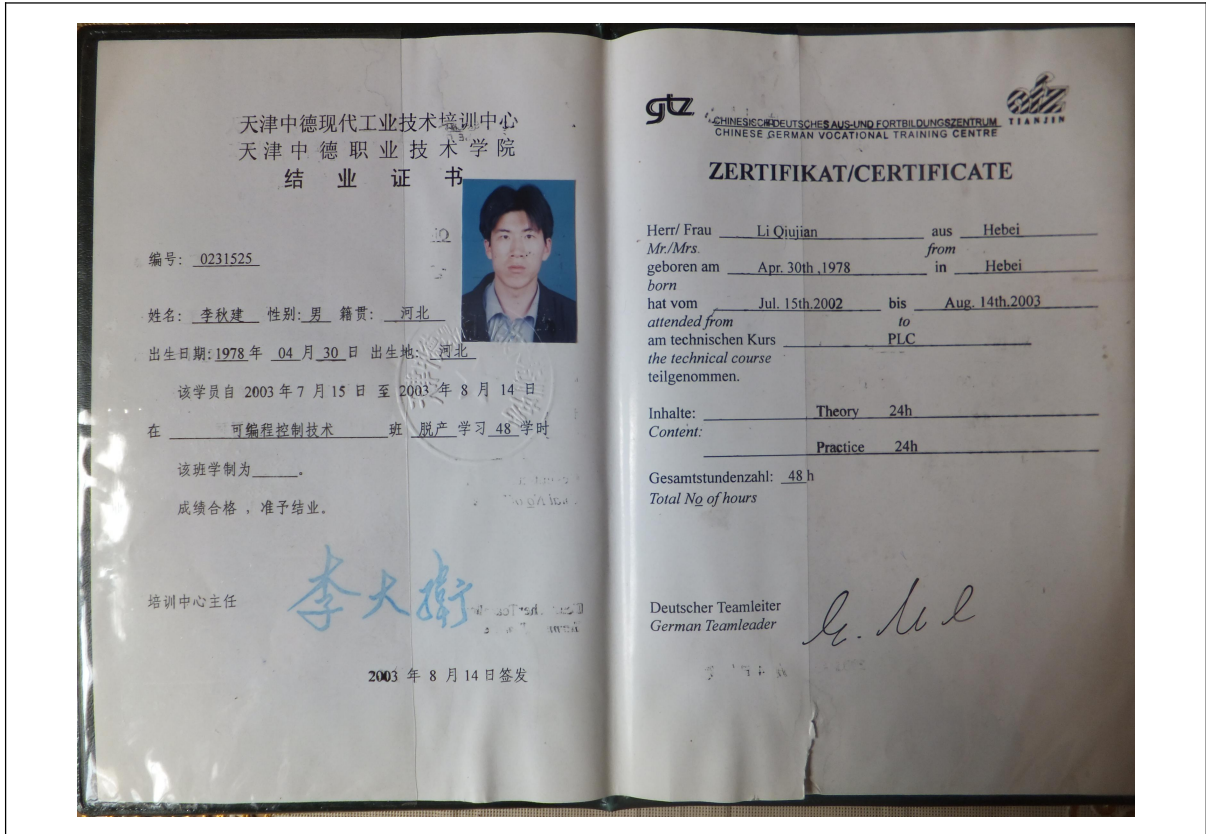 天津中德现代工业技术培训中心
天津中德职业技术学院
结业证书
编号: 0231525
姓名: 李秋建 性别: 男 籍贯: 河北
出生日期: 1978 年 04 月 30 日 出生地: 河北
该学员自 2003 年 7 月 15 日 至 2003 年 8 月 14 日
在 可编程控制技术 班 脱产 学习 48 学时
该班学制为______。
成绩合格，准予结业。
培训中心主任 李大衛
2003 年 8 月 14 日签发
gtz
CHINESISCH-DEUTSCHES AUS-UND FORTBILDUNGSZENTRUM
CHINESE GERMAN VOCATIONAL TRAINING CENTRE
TIANJIN
ZERTIFIKAT/CERTIFICATE
Herr/ Frau Li Qiujian aus Hebei
Mr./Mrs. from
geboren am Apr. 30th ,1978 in Hebei
born
hat vom Jul. 15th.2002 bis Aug. 14th.2003
attended from to
am technischen Kurs PLC
the technical course
teilgenommen.
Inhalte: Theory 24h
Content:
Practice 24h
Gesamtstundenzahl: 48 h
Total No of hours
Deutscher Teamleiter
German Teamleader